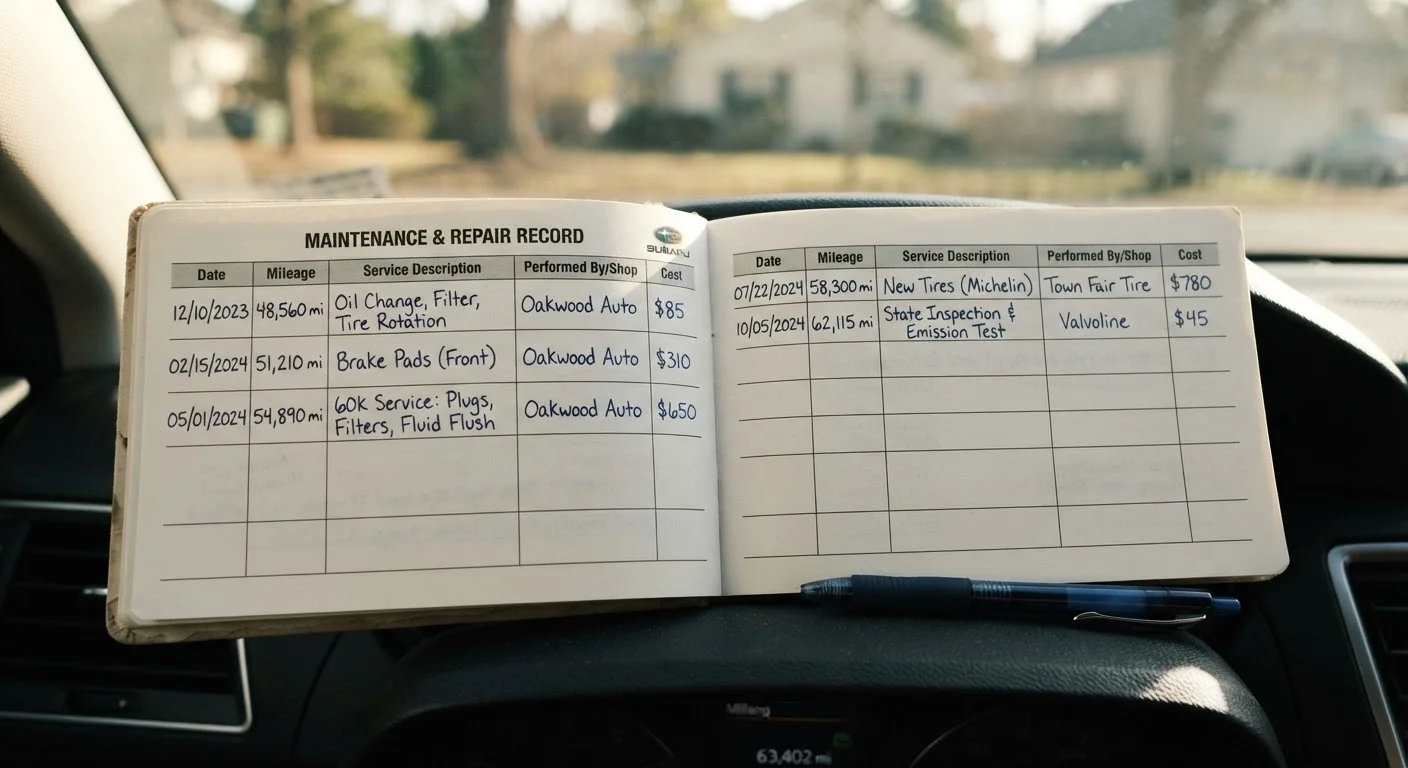 MAINTENANCE & REPAIR RECORD
Date Mileage Service Description Performed By/Shop Cest
12/10/2023 48,560 mi Oil Change, Filter, Oakwood Auto $85
Tire Rotation
02/15/2024 51,210 mi Brake Pads (Front) Oakwood Auto $310
05/01/2024 54,890 mi 60k Service: Plugs, Oakwood Auto $650
Filters, Fluid Flush
Date Mileage Service Description Performed By/Shop Cost
07/22/2024 58,300 mi New Tires (Michelin) Town Fair Tire $780
10/05/2024 62,115 mi State Inspection & Valvoline $45
Emission Test
63,402 mi